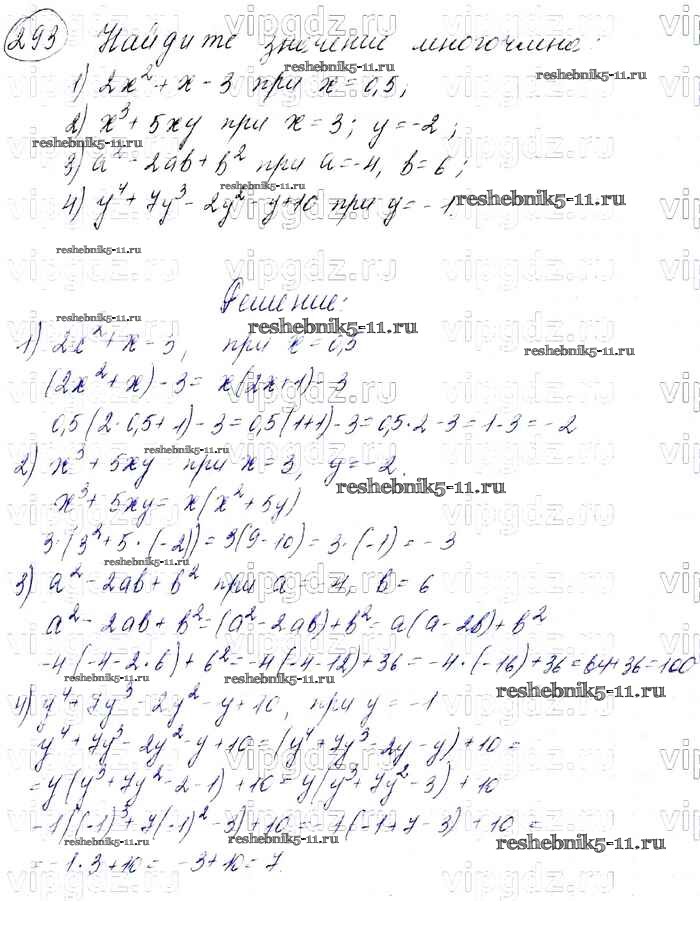 293 Найдите значение многочлена:
1) 2x² + x - 3 при x = 0,5;
2) x³ + 5xy при x = 3; y = -2;
3) a² - 2ab + b² при a = -4, b = 6;
4) y⁴ + 7y³ - 2y² - y + 10 при y = -1.
Решение:
1) 2x² + x - 3, при x = 0,5
(2x² + x) - 3 = x(2x+1) - 3
0,5(2·0,5+1) - 3 = 0,5(1+1) - 3 = 0,5·2 - 3 = 1 - 3 = -2
2) x³ + 5xy при x = 3, y = -2.
x³ + 5xy = x(x² + 5y)
3·(3² + 5·(-2)) = 3(9-10) = 3·(-1) = -3
3) a² - 2ab + b² при a = -4, b = 6
a² - 2ab + b² = (a² - 2ab) + b² = a(a - 2b) + b²
-4(-4-2·6) + 6² = -4(-4-12) + 36 = -4·(-16) + 36 = 64+36 = 100
4) y⁴ + 7y³ - 2y² - y + 10, при y = -1
y⁴ + 7y³ - 2y² - y + 10 = (y⁴ + 7y³ - 2y - y) + 10 =
= y(y³ + 7y² - 2 - 1) + 10 = y(y³ + 7y² - 3) + 10
-1((-1)³ + 7(-1)² - 3) + 10 = -1(-1+7-3) + 10 =
= -1·3 + 10 = -3 + 10 = 7.
vipgdz.ru
reshebnik5-11.ru